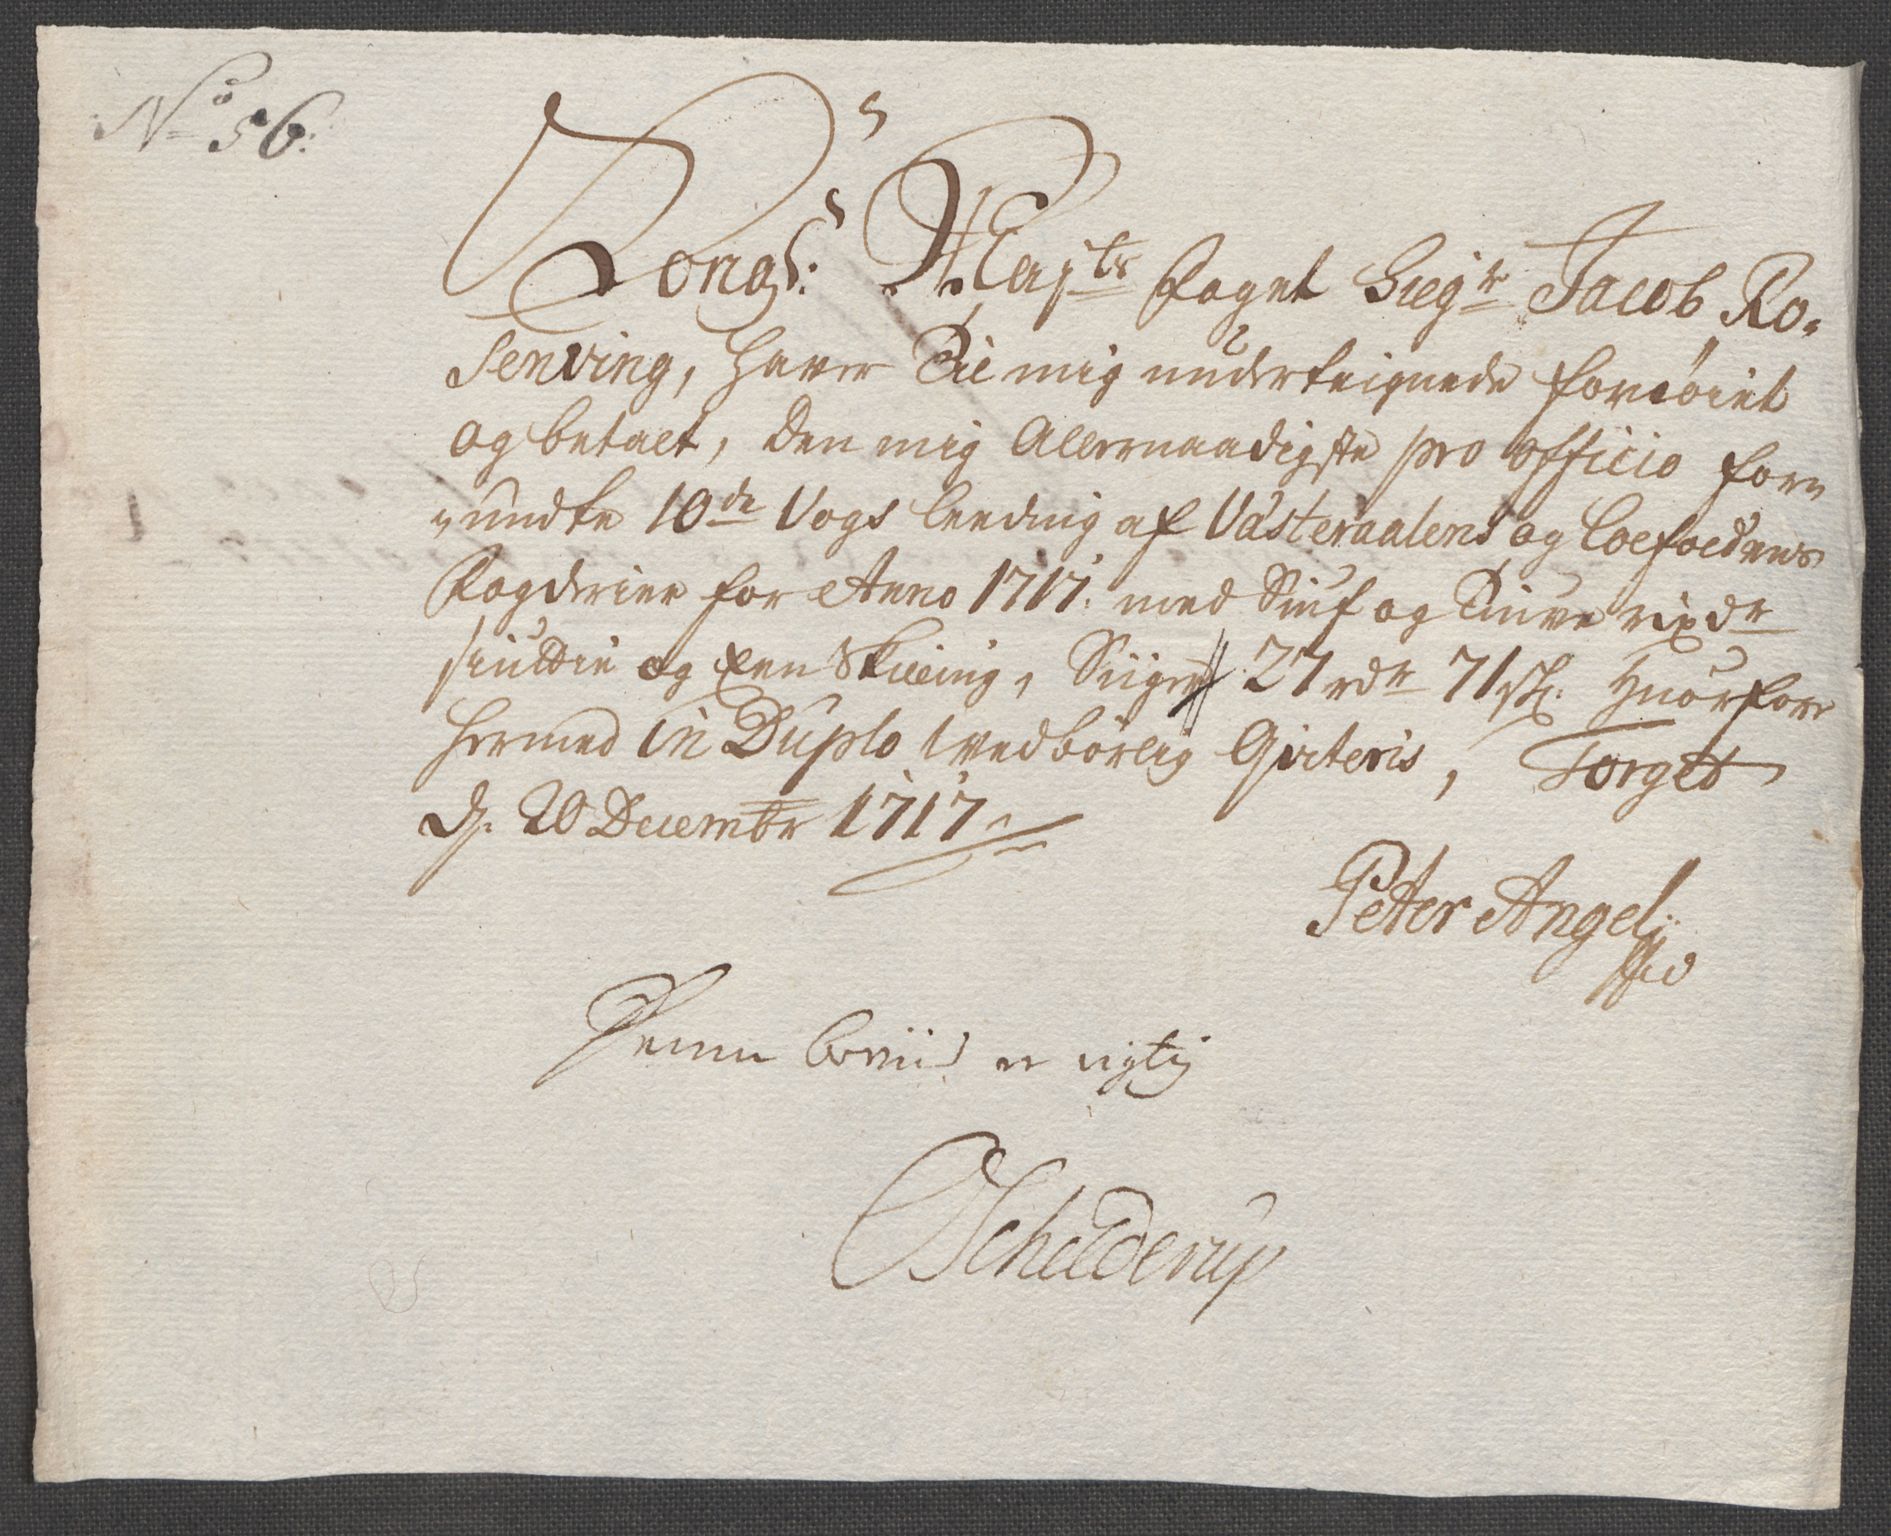 No 56.
Kongl: Mayts Foget Sieg:r Jacob Ro-
senving, Haver Til mig underteignede fornøiet
og betalt, den mig Allernaadigste pro officio for-
undte 10de Vogs Leeding af Västeraalens og Loefoedens
Fogderier for Anno 1717. med Siuf og Tiuve rixdr
siutie og Een Skilling, Siiger 27 rdr 71 sk. Huorfore
Hermed in Duplo vedbørlig Qviteris, Torget
d. 20 Decembr 1717
Peter Angel
Denne Beviis er rigtig
OSchielderup